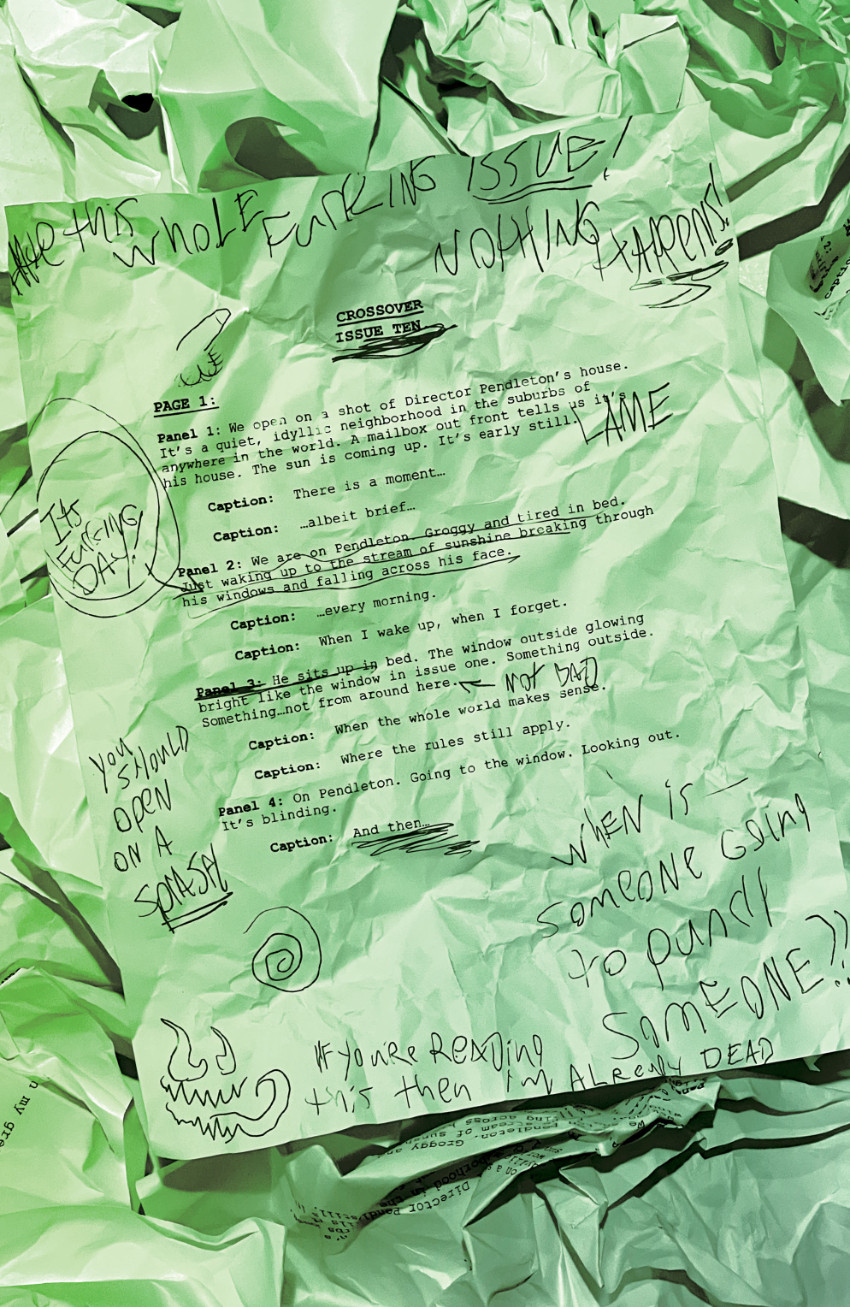 Hate this whole Furking ISSUE!
NOTHING HAPPENS!
CROSSOVER
ISSUE TEN
PAGE 1:
Panel 1: We open on a shot of Director Pendleton's house.
It's a quiet, idyllic neighborhood in the suburbs of
anywhere in the world. A mailbox out front tells us it's
his house. The sun is coming up. It's early still.
LAME
Caption: There is a moment…
Caption: …albeit brief…
Its
Furking
DAY!
Panel 2: We are on Pendleton. Groggy and tired in bed.
Just waking up to the stream of sunshine breaking through
his windows and falling across his face.
Caption: …every morning.
Caption: When I wake up, when I forget.
Panel 3: He sits up in bed. The window outside glowing
bright like the window in issue one. Something outside.
Something…not from around here.
NOT BAD
Caption: When the whole world makes sense.
Caption: Where the rules still apply.
Panel 4: On Pendleton. Going to the window. Looking out.
It's blinding.
Caption: And then…
You
SHOULD
OPEN
ON A
SPLASH
WHEN is
SOMEONE GOING
to punch
SOMEONE??!
IF YOU'RE READING
this then i'm ALREADY DEAD
n my gre